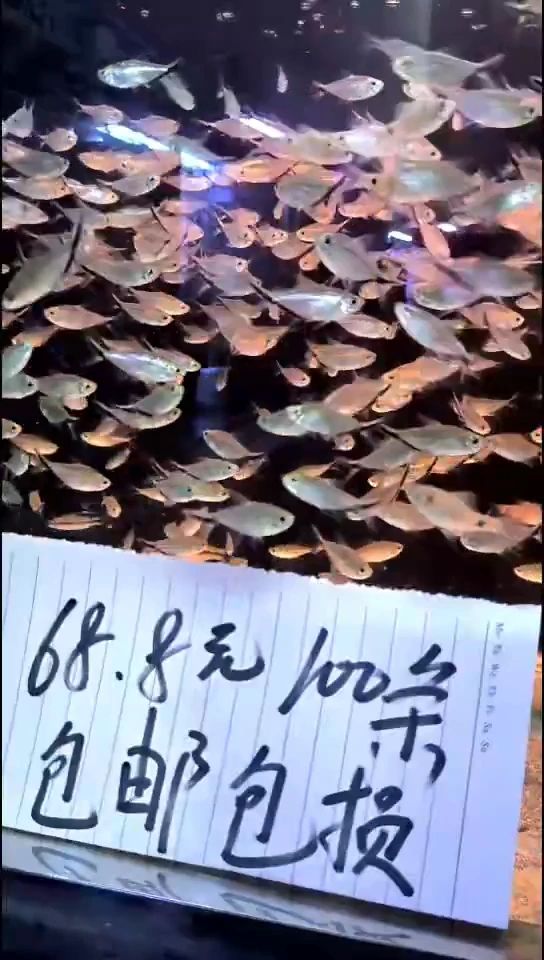 68.8元 100条
包邮包损
Mo Tu We Th Fr Sa Su